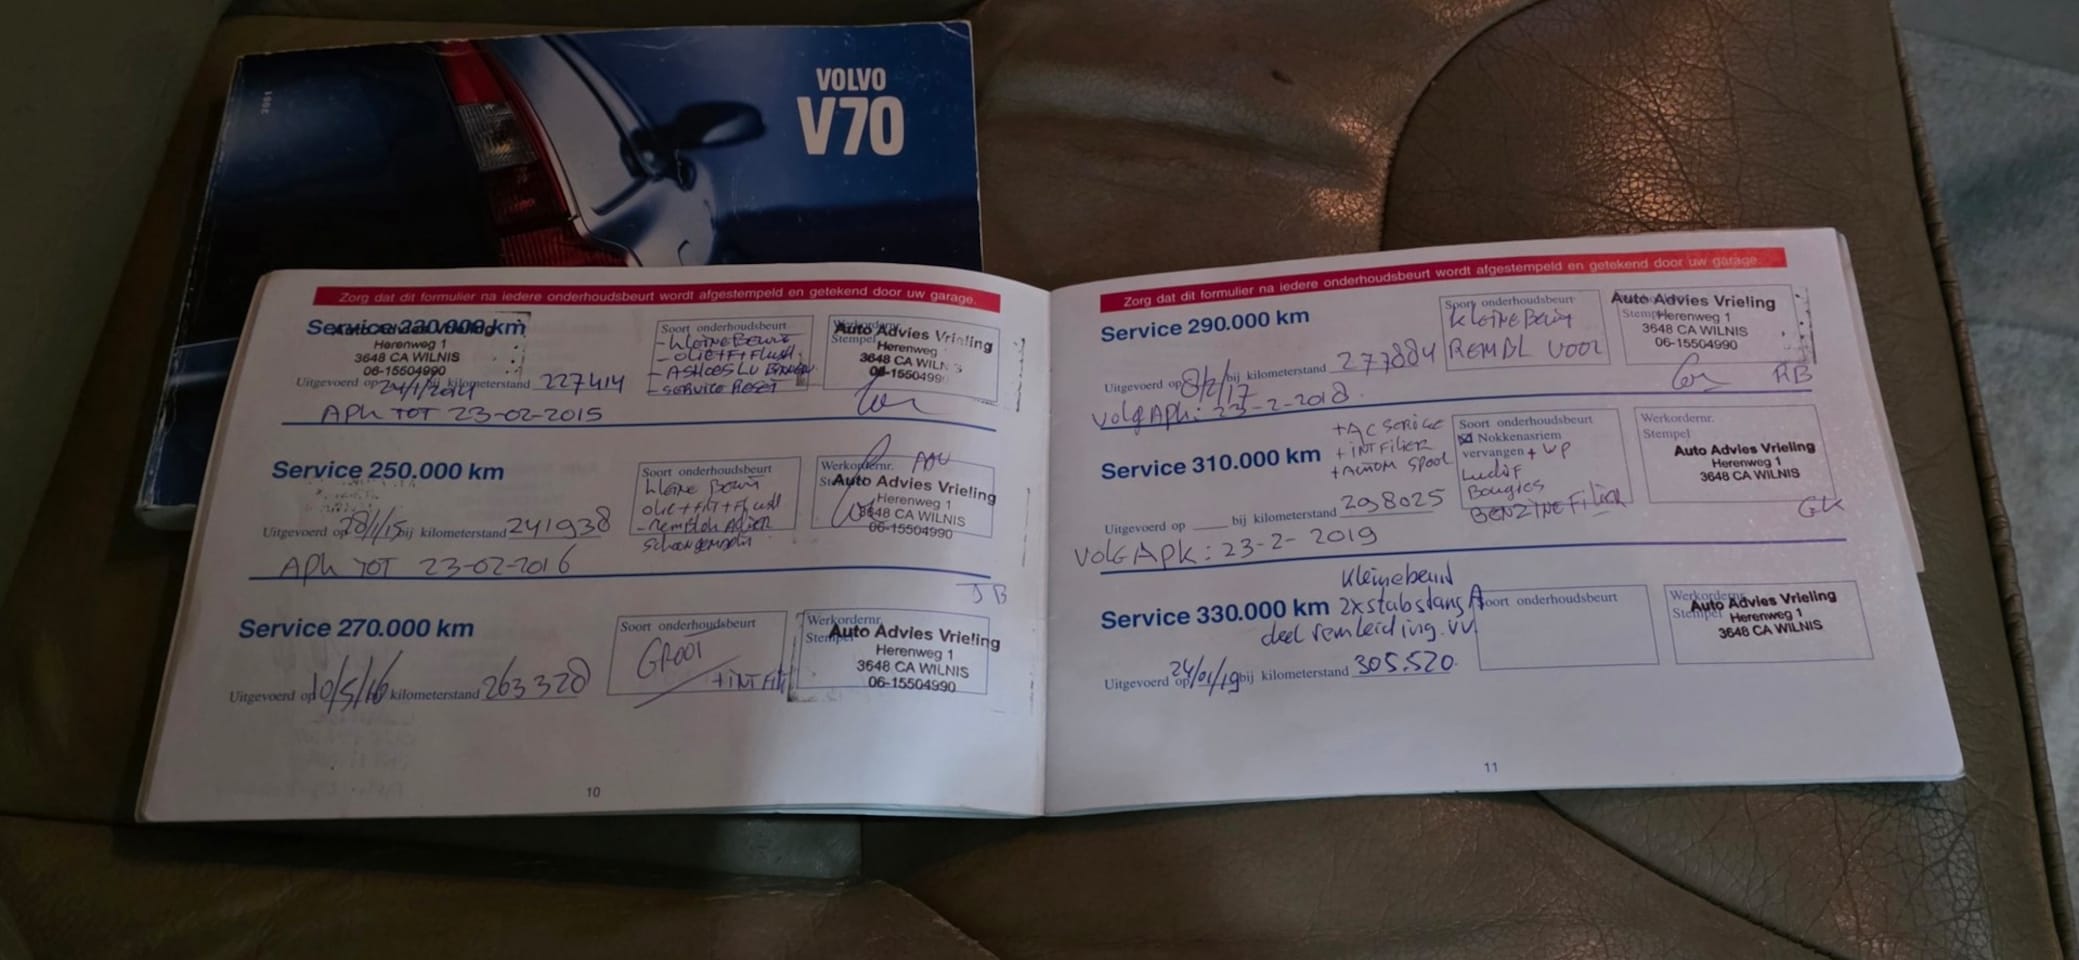 2001
VOLVO
V70
Zorg dat dit formulier na iedere onderhoudsbeurt wordt afgestempeld en getekend door uw garage.
Service 230.000 km
Auto Advies Vrieling
Herenweg 1
3648 CA WILNIS
06-15504990
Uitgevoerd op 24/1/2014 bij kilometerstand 227414
Soort onderhoudsbeurt
- Kleine Beurt
- SERVICE RESET
Werkordernr.
Stempel
Auto Advies Vrieling
Herenweg
3648 CA WILNIS
06-15504990
APK TOT 23-02-2015
Service 250.000 km
Uitgevoerd op 28/1/15 bij kilometerstand 241938
Soort onderhoudsbeurt
kleine Beurt
olie + Filt + Flush
Schoongemaakt
Werkordernr.
Stempel
Auto Advies Vrieling
Herenweg 1
3648 CA WILNIS
06-15504990
APK TOT 23-02-2016
JB
Service 270.000 km
Uitgevoerd op 10/5/16 bij kilometerstand 263328
Soort onderhoudsbeurt
GROOT
+ INT Filt
Werkordernr.
Stempel
Auto Advies Vrieling
Herenweg 1
3648 CA WILNIS
06-15504990
10
Zorg dat dit formulier na iedere onderhoudsbeurt wordt afgestempeld en getekend door uw garage.
Service 290.000 km
Uitgevoerd op 8/2/17 bij kilometerstand 277884
Soort onderhoudsbeurt
Kleine Beurt
REMBL VOOR
Stempel
Auto Advies Vrieling
Herenweg 1
3648 CA WILNIS
06-15504990
RB
Volg APK: 23-2-2018
Service 310.000 km
+ AC SERVICE
+ INT Filter
+ AUTOM SPOOL
Uitgevoerd op bij kilometerstand 298025
Soort onderhoudsbeurt
Nokkenasriem
vervangen + WP
Luchtf
Bougies
BENZINEFILTER
Werkordernr.
Stempel
Auto Advies Vrieling
Herenweg 1
3648 CA WILNIS
GK
Volg APK: 23-2-2019
Service 330.000 km
Kleinebeurt
2x stabstang
deel remleiding.vv
Uitgevoerd op 24/01/19 bij kilometerstand 305.520
Soort onderhoudsbeurt
Werkordernr.
Stempel
Auto Advies Vrieling
Herenweg 1
3648 CA WILNIS
11